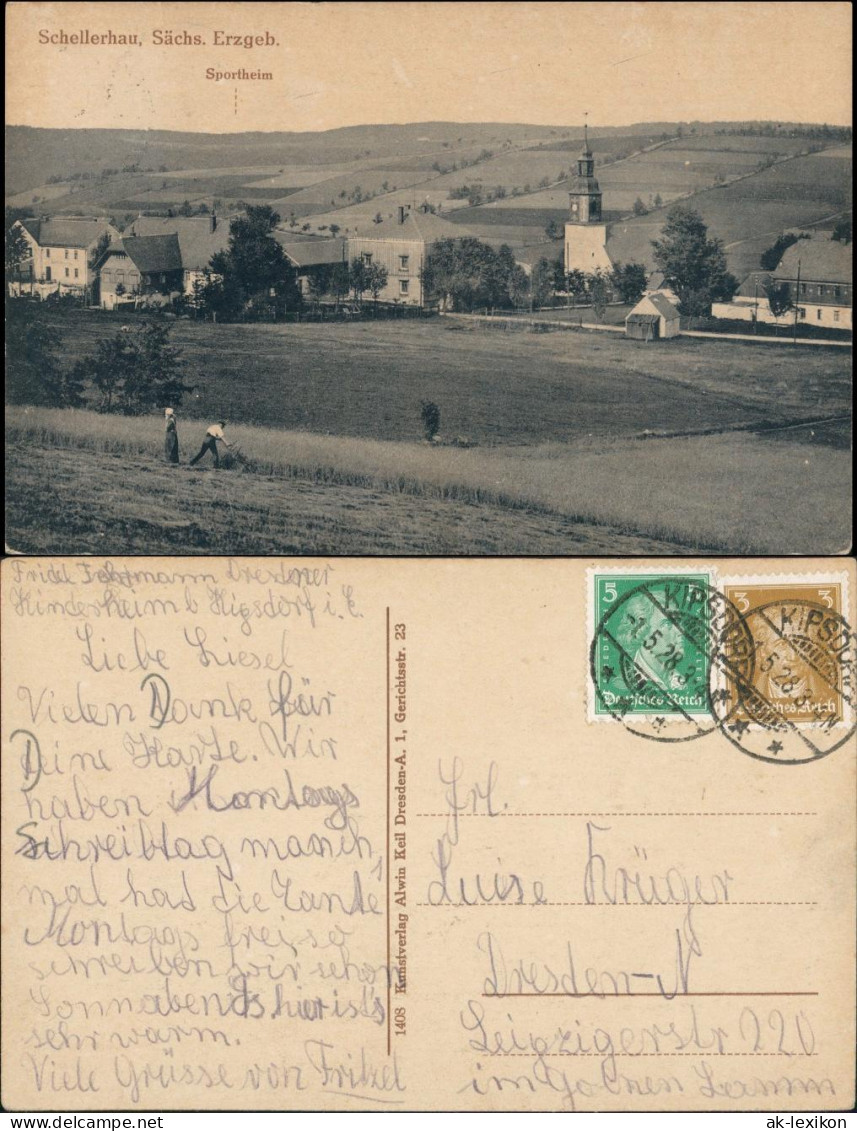 Schellerhau, Sächs. Erzgeb.
Sportheim
Dresdner
Kinderheim b
Liebe Liesel
Vielen Dank für
Deine Karte. Wir
haben Montags
Schreibtag manch,
mal had die Tante
Montags frei, so
schreiben wir schon
Sonnabends hier ist's
sehr warm.
Viele Grüsse von Fritzel
1408 Kunstverlag Alwin Keil Dresden-A. 1, Gerichtsstr. 23
5
Deutsches Reich
3
3
Deutsches Reich
KIPSDORF
-1.5.28.3-
KIPSDORF
1.5.28.3-4N.
Frl.
Luise Krüger
Dresden-N
Leipzigerstr 220
im Goldnen Lamm
ak-lexikon
© ak-lexikon.de